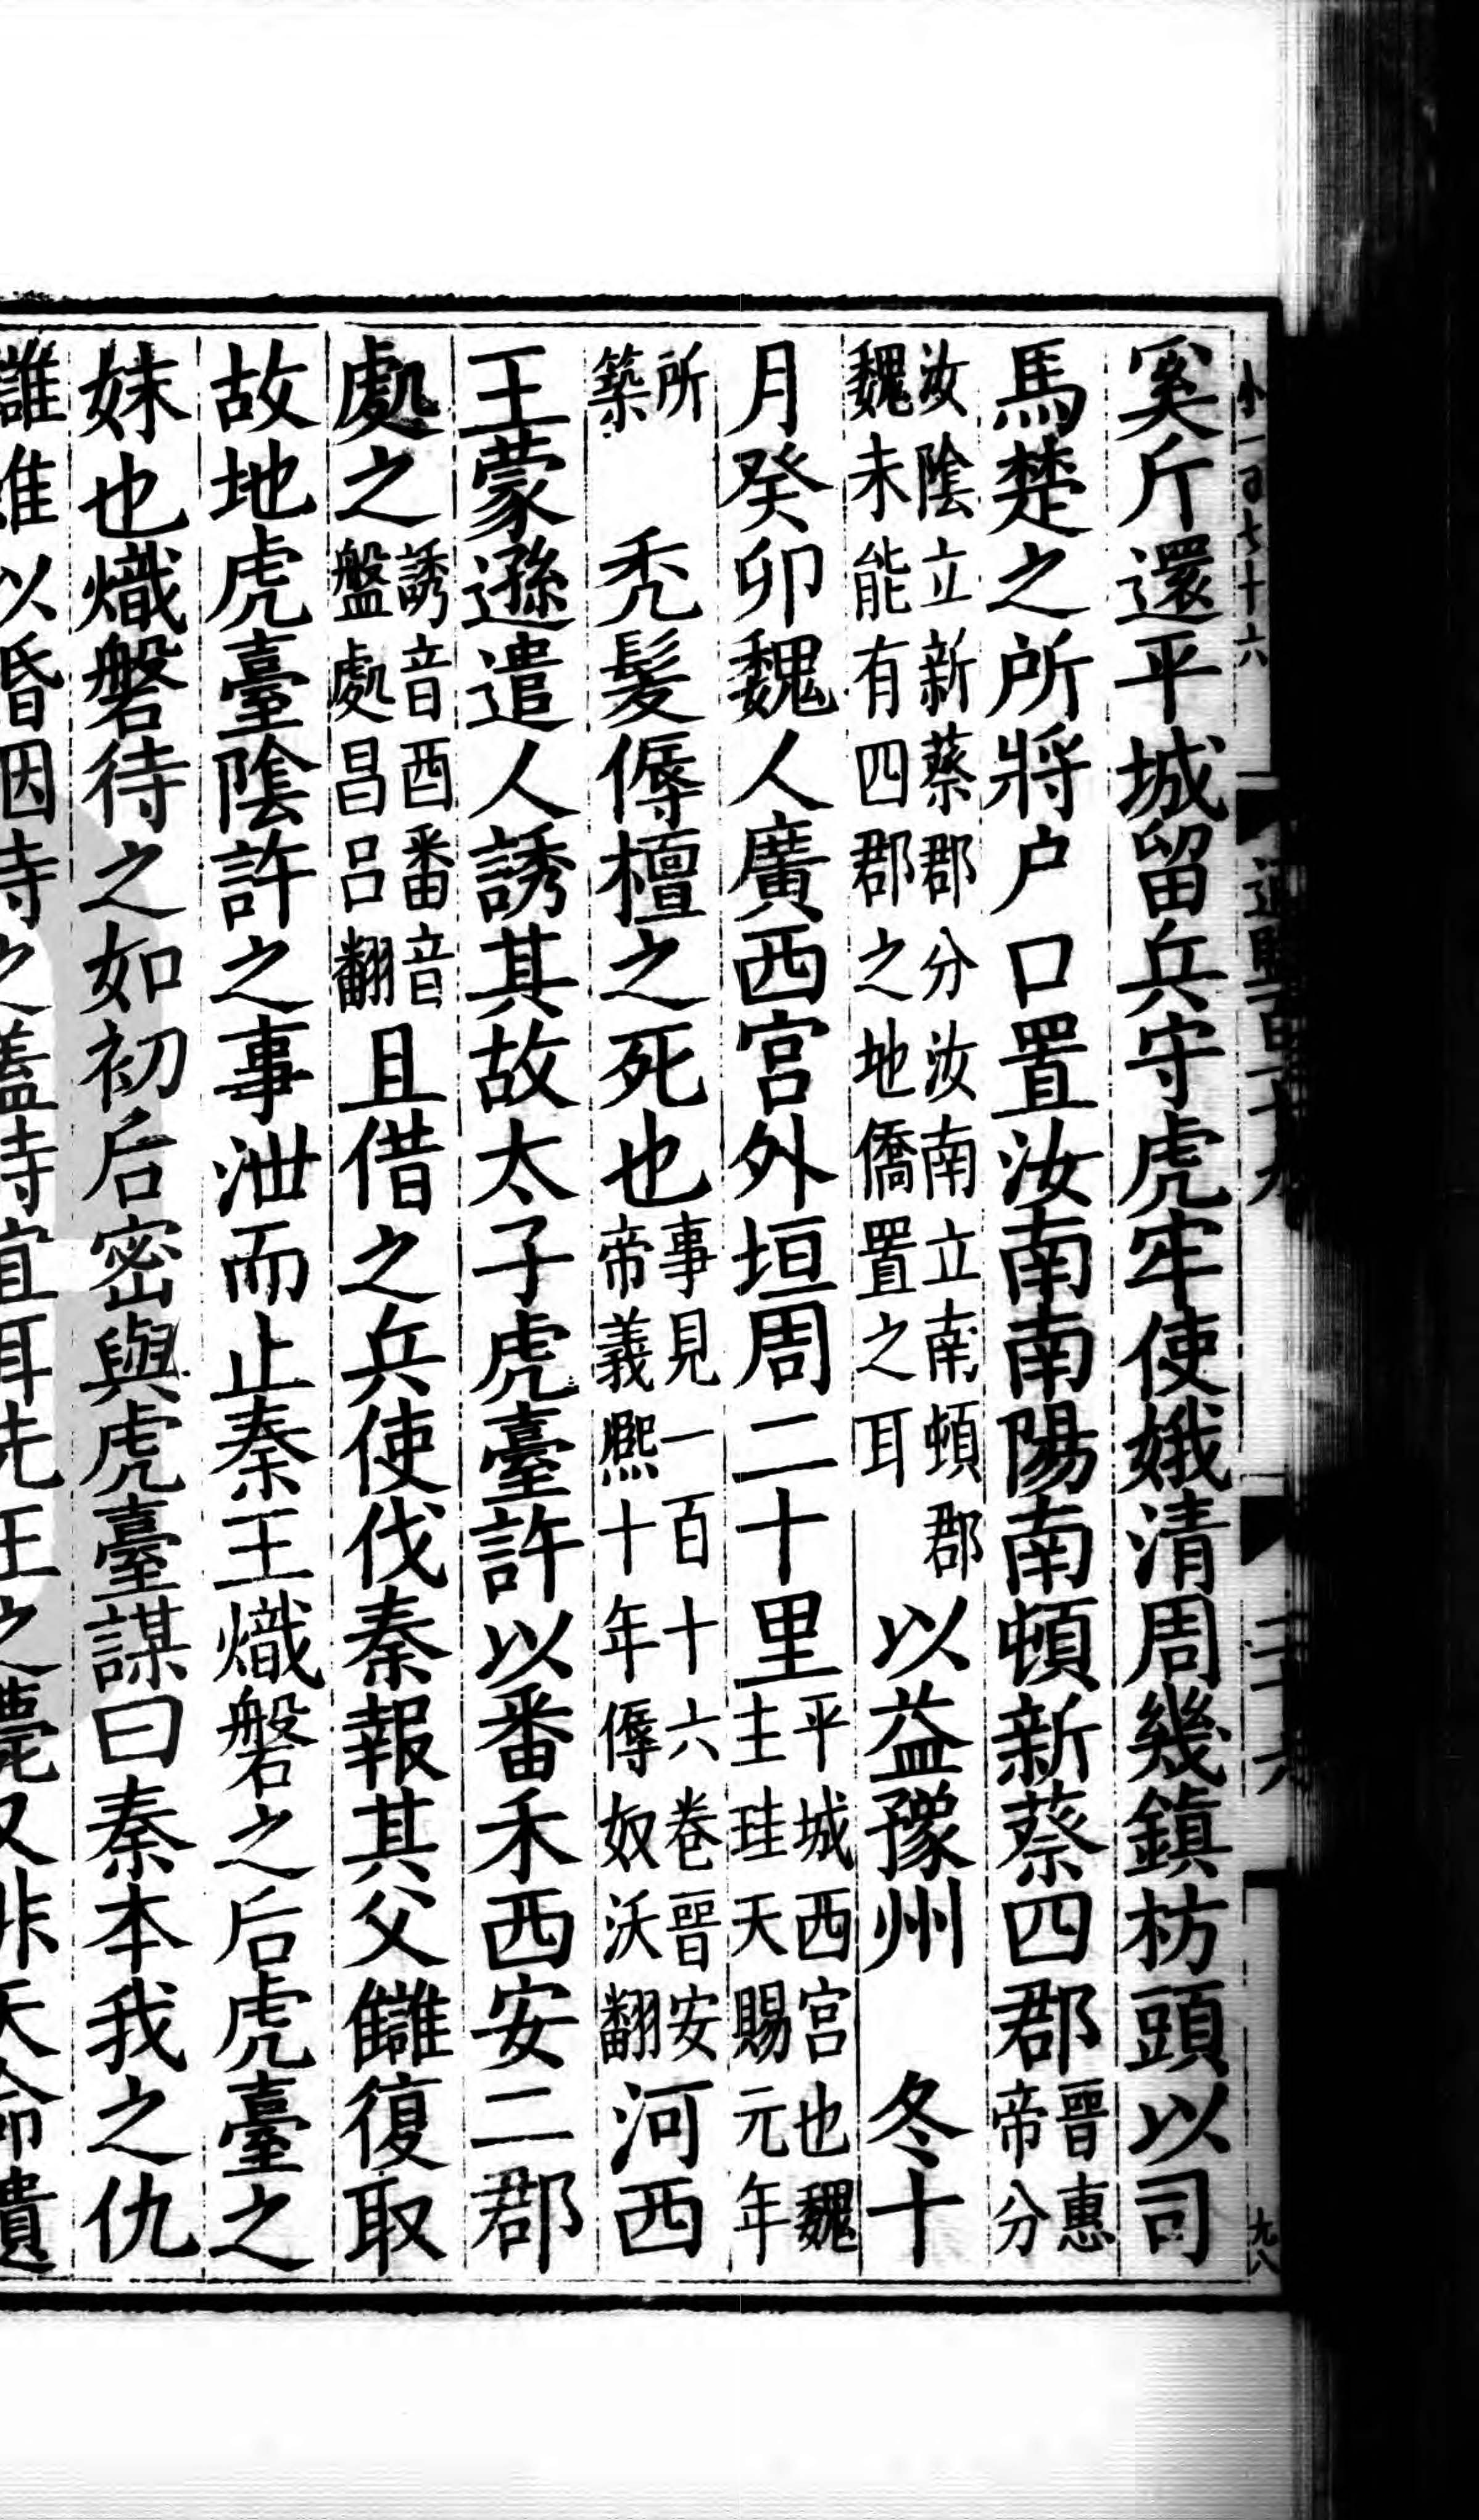 奚斤還平城留兵守虎牢使娥清周幾鎮枋頭以司
馬楚之所將户口置汝南南陽南頓新蔡四郡晉惠帝分
汝陰立新蔡郡分汝南立南頓郡魏未能有四郡之地僑置之耳以益豫州　冬十
月癸卯魏人廣西宮外垣周二十里平城西宮也魏主珪天賜元年
所築　秃髮傉檀之死也事見一百十六卷晉安帝義熙十年傉奴沃翻河西
王蒙遜遣人誘其故太子虎臺許以番禾西安二郡
處之誘音酉番音盤處昌呂翻且借之兵使伐秦報其父讎復取
故地虎臺陰許之事泄而止秦王熾磐之后虎臺之
妹也熾磐待之如初后密與虎臺謀曰秦本我之仇
讎雖以昏姻待之蓋時宜耳先王之薨又非天命遺